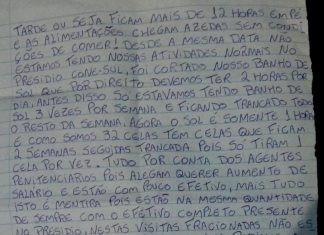 TARDE OU SEJA FICAM MAIS DE 12 HORAS EM PÉ
E AS ALIMENTAÇÕES CHEGAM AZEDAS SEM CONDI
ÇOES DE COMER! DESDE A MESMA DATA NÃO
ESTAMOS TENDO NOSSAS ATIVIDADES NORMAIS NO
PRESIDIO CONE-SUL, FOI CORTADO NOSSO BANHO DE
SOL QUE POR DIREITO DEVEMOS TER 2 HORAS POR
DIA, ANTES DISSO SO ESTAVAMOS TENDO BANHO DE
SOL 3 VEZES POR SEMANA E FICANDO TRANCADO TODO
O RESTO DA SEMANA, AGORA O SOL É SOMENTE 1 HORA
E COMO SOMOS 32 CELAS TEM CELAS QUE FICAM
2 SEMANAS SEGUIDAS TRANCADA POIS SO TIRAM 1
CELA POR VEZ. TUDO POR CONTA DOS AGENTES
PENITENCIÁRIOS POIS ALEGAM QUERER AUMENTO DE
SALÁRIO E ESTÃO COM POUCO EFETIVO, MAIS TUDO
ISTO É MENTIRA POIS ESTÃO NA MESMA QUANTIDADE
DE SEMPRE COM O EFETIVO COMPLETO PRESENTE
NO PRESIDIO, NESTAS VISITAS FRACIONADAS NÃO ES